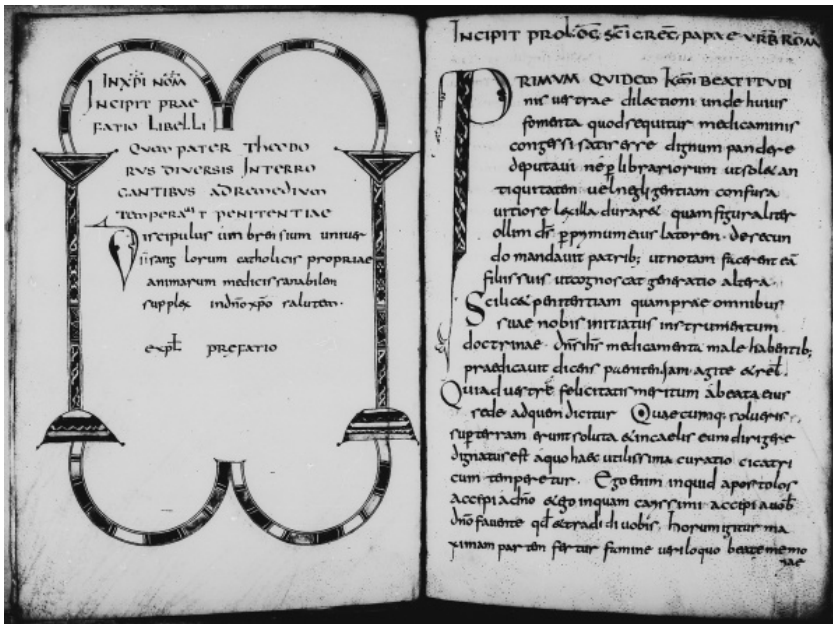 IN XPI NOM
INCIPIT PRAE
FATIO LIBELLI
QUAM PATER THEODO
RUS DIVERSIS INTERRO
GANTIBUS AD REMEDIUM
TEMPERAUIT PENITENTIAE
Discipulus umbrensium univer
sis anglorum catholicis propriae
animarum medicis sanabilem
supplex in dno xpo salutem.
expł prefatio
INCIPIT PROLOG SCI GREG PAPAE URB ROM
PRIMUM QUIDEM BEATITUDI
nis uestrae dilectioni unde huius
fomenta quod sequitur medicaminis
congessi satis esse dignum pandere
deputavi ne p librariorum ut solet an
tiquitatem uel negligentiam confusa
uitiose lexilla duraret quam figuraliter
ollim ds p primum eius latorem de secun
do mandauit patrib; ut notam facerent ea
filiis suis ut cognoscat generatio altera.
Scilicet penitentiam quam prae omnibus
suae nobis initiatus instrumentum
doctrinae. dns ihs medicamenta male habentib;
praedicauit dicens paeniten. iam agite & rel.
Qui ad uestrae felicitatis meritum a beata eius
sede ad quem dicitur Quaecumq; solueris
sup terram erunt soluta & in caelis eum dirigere
dignatus est a quo haec utilissima curatio cicatri
cum temperetur. Ego enim inquid apostolos
accepi a dno & ego inquam carissimi accepi a uob
dno fauente qd & tradidi uobis. horum igitur ma
ximam partem fertur famine ueriloquo beate memo
riae